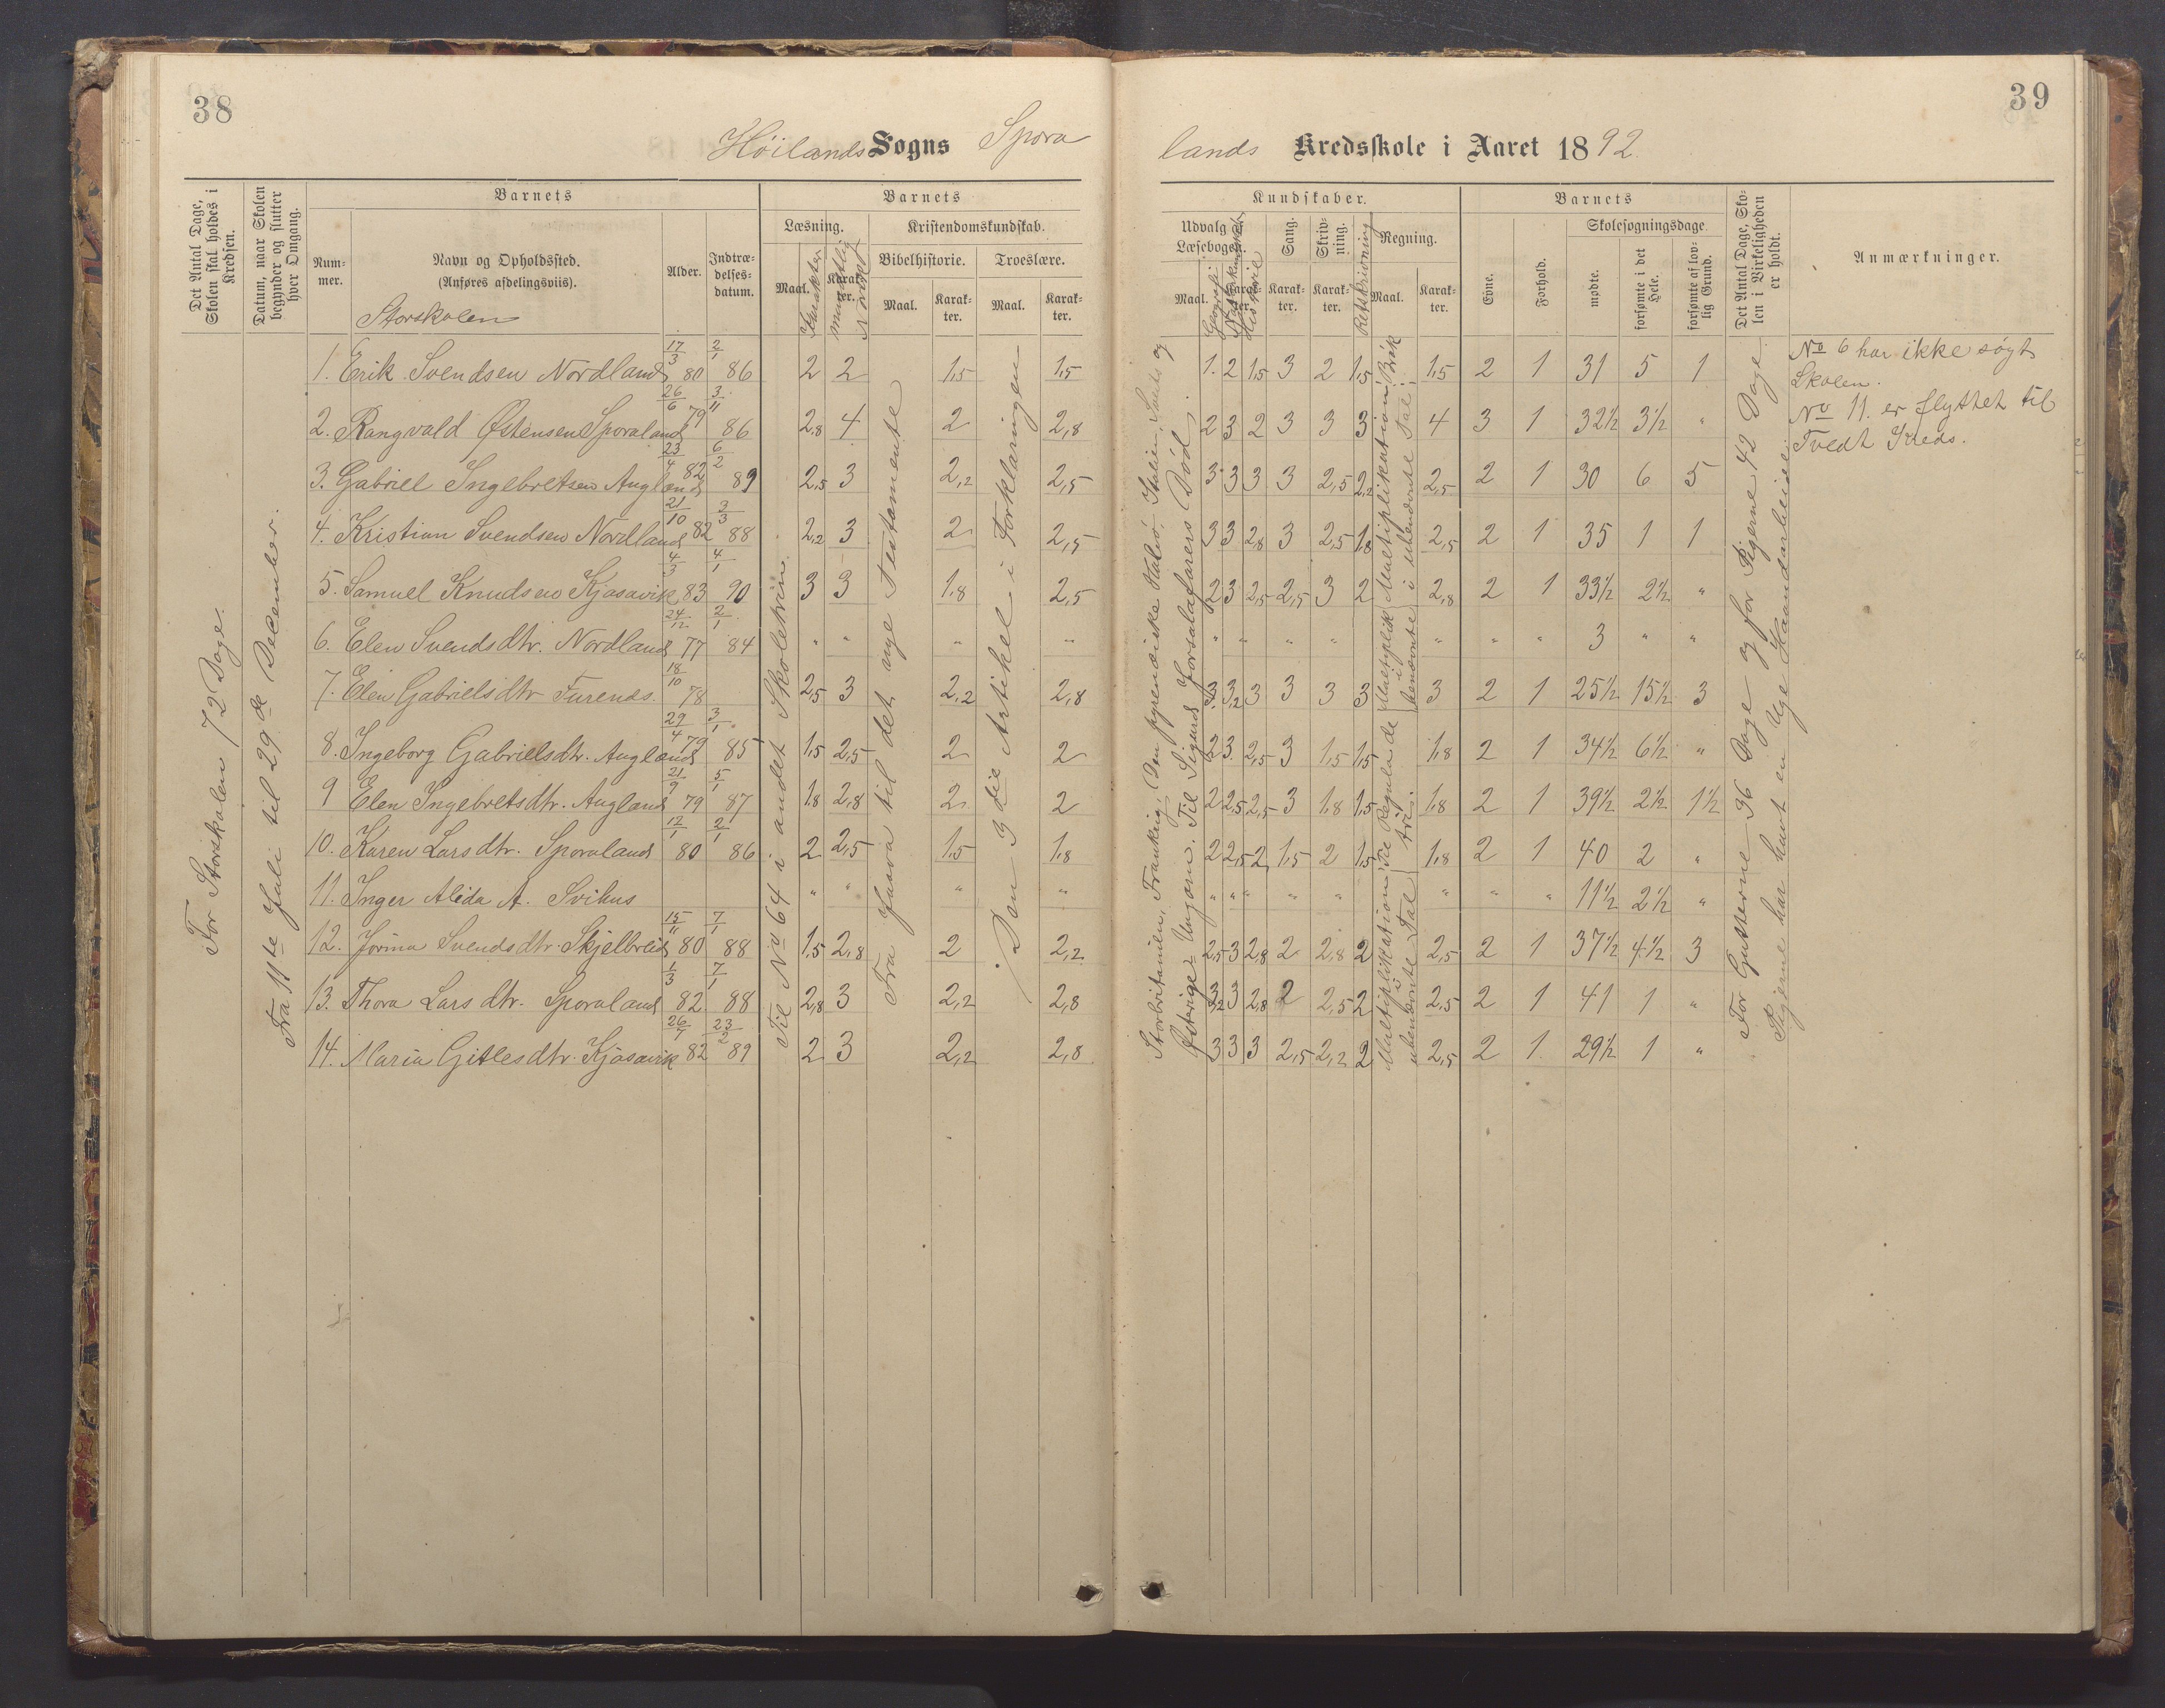 38
Höilands Sogns Spora
Det Antal Dage, Skolen skal holdes i Kredsen.
Datum, naar Skolen begynder og slutter hver Omgang.
Barnets
Nummer.
Navn og Opholdssted.
(Anføres afdelingsviis).
Storskolen
Alder.
Indtrædelsesdatum.
Barnets
Læsning.
Maal.
Karakter
Karakter.
mundtlig Norsk
Kristendomskundskab.
Bibelhistorie.
Maal.
Karakter.
Troeslære.
Maal.
Karakter.
For Storskolen 72 Dage.
Fra 11te Juli til 29de December.
Til No 64 i andet Skoletrin.
Fra Juava til det nye Testamente
Den 3die Artikel i Forklaringen
1. Erik Svendsen Nordland 17/3 80 2/1 86 2 2 1,5 1,5
2. Rangvald Østensen Sporaland 26/6 79 3/11 86 2,8 4 2 2,8
3. Gabriel Ingebretsen Augland 23/4 82 6/2 89 2,5 3 2,2 2,5
4. Kristian Svendsen Nordland 21/10 82 3/3 88 2,2 3 2 2,5
5. Samuel Knudsen Kjosavik 4/3 83 4/1 90 3 3 1,8 2,5
6. Elen Svendsdtr. Nordland 24/12 77 2/1 84 " " " "
7. Elen Gabrielsdtr Furends. 18/10 78 2,5 3 2,2 2,8
8. Ingeborg Gabrielsdtr. Augland 29/4 79 3/1 85 1,5 2,5 2 2
9 Elen Ingebretsdtr. Augland 21/9 79 5/1 87 1,8 2,8 2 2
10. Karen Larsdtr. Sporaland 12/1 80 2/1 86 2 2,5 1,5 1,8
11. Inger Alida A. Svihus " " " "
12. Jorina Svendsdtr. Skjelbreid 15/11 80 7/1 88 1,5 2,8 2 2,2
13. Thora Larsdtr. Sporaland 1/3 82 7/1 88 2,8 3 2,2 2,8
14. Maria Gitlesdtr. Kjosavik 26/7 82 23/2 89 2 3 2,2 2,8
39
lands Kredsskole i Aaret 1892.
Kundskaber.
Udvalg af Læsebogen.
Maal.
Geografi
Karakter.
Naturkundskab
Historie
Sang.
Karakter.
Skrivning.
Karakter.
Retskrivning
Regning.
Maal.
Karakter.
Barnets
Evne.
Forhold.
Skolesøgningsdage
mødte.
forsømte i det Hele.
forsømte af lovlig Grund.
Det Antal Dage, Skolen i Virkeligheden er holdt.
Anmærkninger.
Storbritanien, Frankrig, Den pyrenæiske Halvö, Italien, og
Østerige-Ungarn. Til Sigurd Jorsalafarers Död.
Multiplikation i ubenævnte Tal
Til Regula de tri.
Multiplik i benævnte
Multiplikation i ubenævnte Tal
Brøk
For Gutterne 36 Dage og for Pigerne 42 Dage.
Pigerne har havt en Uge Haandarbeide.
1. 2 1,5 3 2 1,5 1,5 2 1 31 5 1
2 3 2 3 3 3 4 3 1 32½ 3½ "
3 3 3 3 2,5 2,2 2,5 2 1 30 6 5
3 3 2,8 3 2,5 1,8 2,5 2 1 35 1 1
2 3 2,5 2,5 3 2 2,8 2 1 33½ 2½ "
" " " " " " " " 3 " "
3 3,2 3 3 3 3 3 2 1 25½ 15½ 3
2 3 2,5 3 1,5 1,5 1,8 2 1 34½ 6½ "
2 2,5 2,5 3 1,8 1,5 1,8 2 1 39½ 2½ 1½
2 2,5 2 1,5 2 1,5 1,8 2 1 40 2 "
" " " " " " " " 11½ 2½ "
2,5 3 2,8 2 2,8 2 2,5 2 1 37½ 4½ 3
3,2 3 2,8 2 2,5 2 2,5 2 1 41 1 "
3 3 3 2,5 2,2 2 2,5 2 1 29½ 1 "
No 6 har ikke søgt
Skolen.
No 11. er flyttet til
Tvedt Kreds.